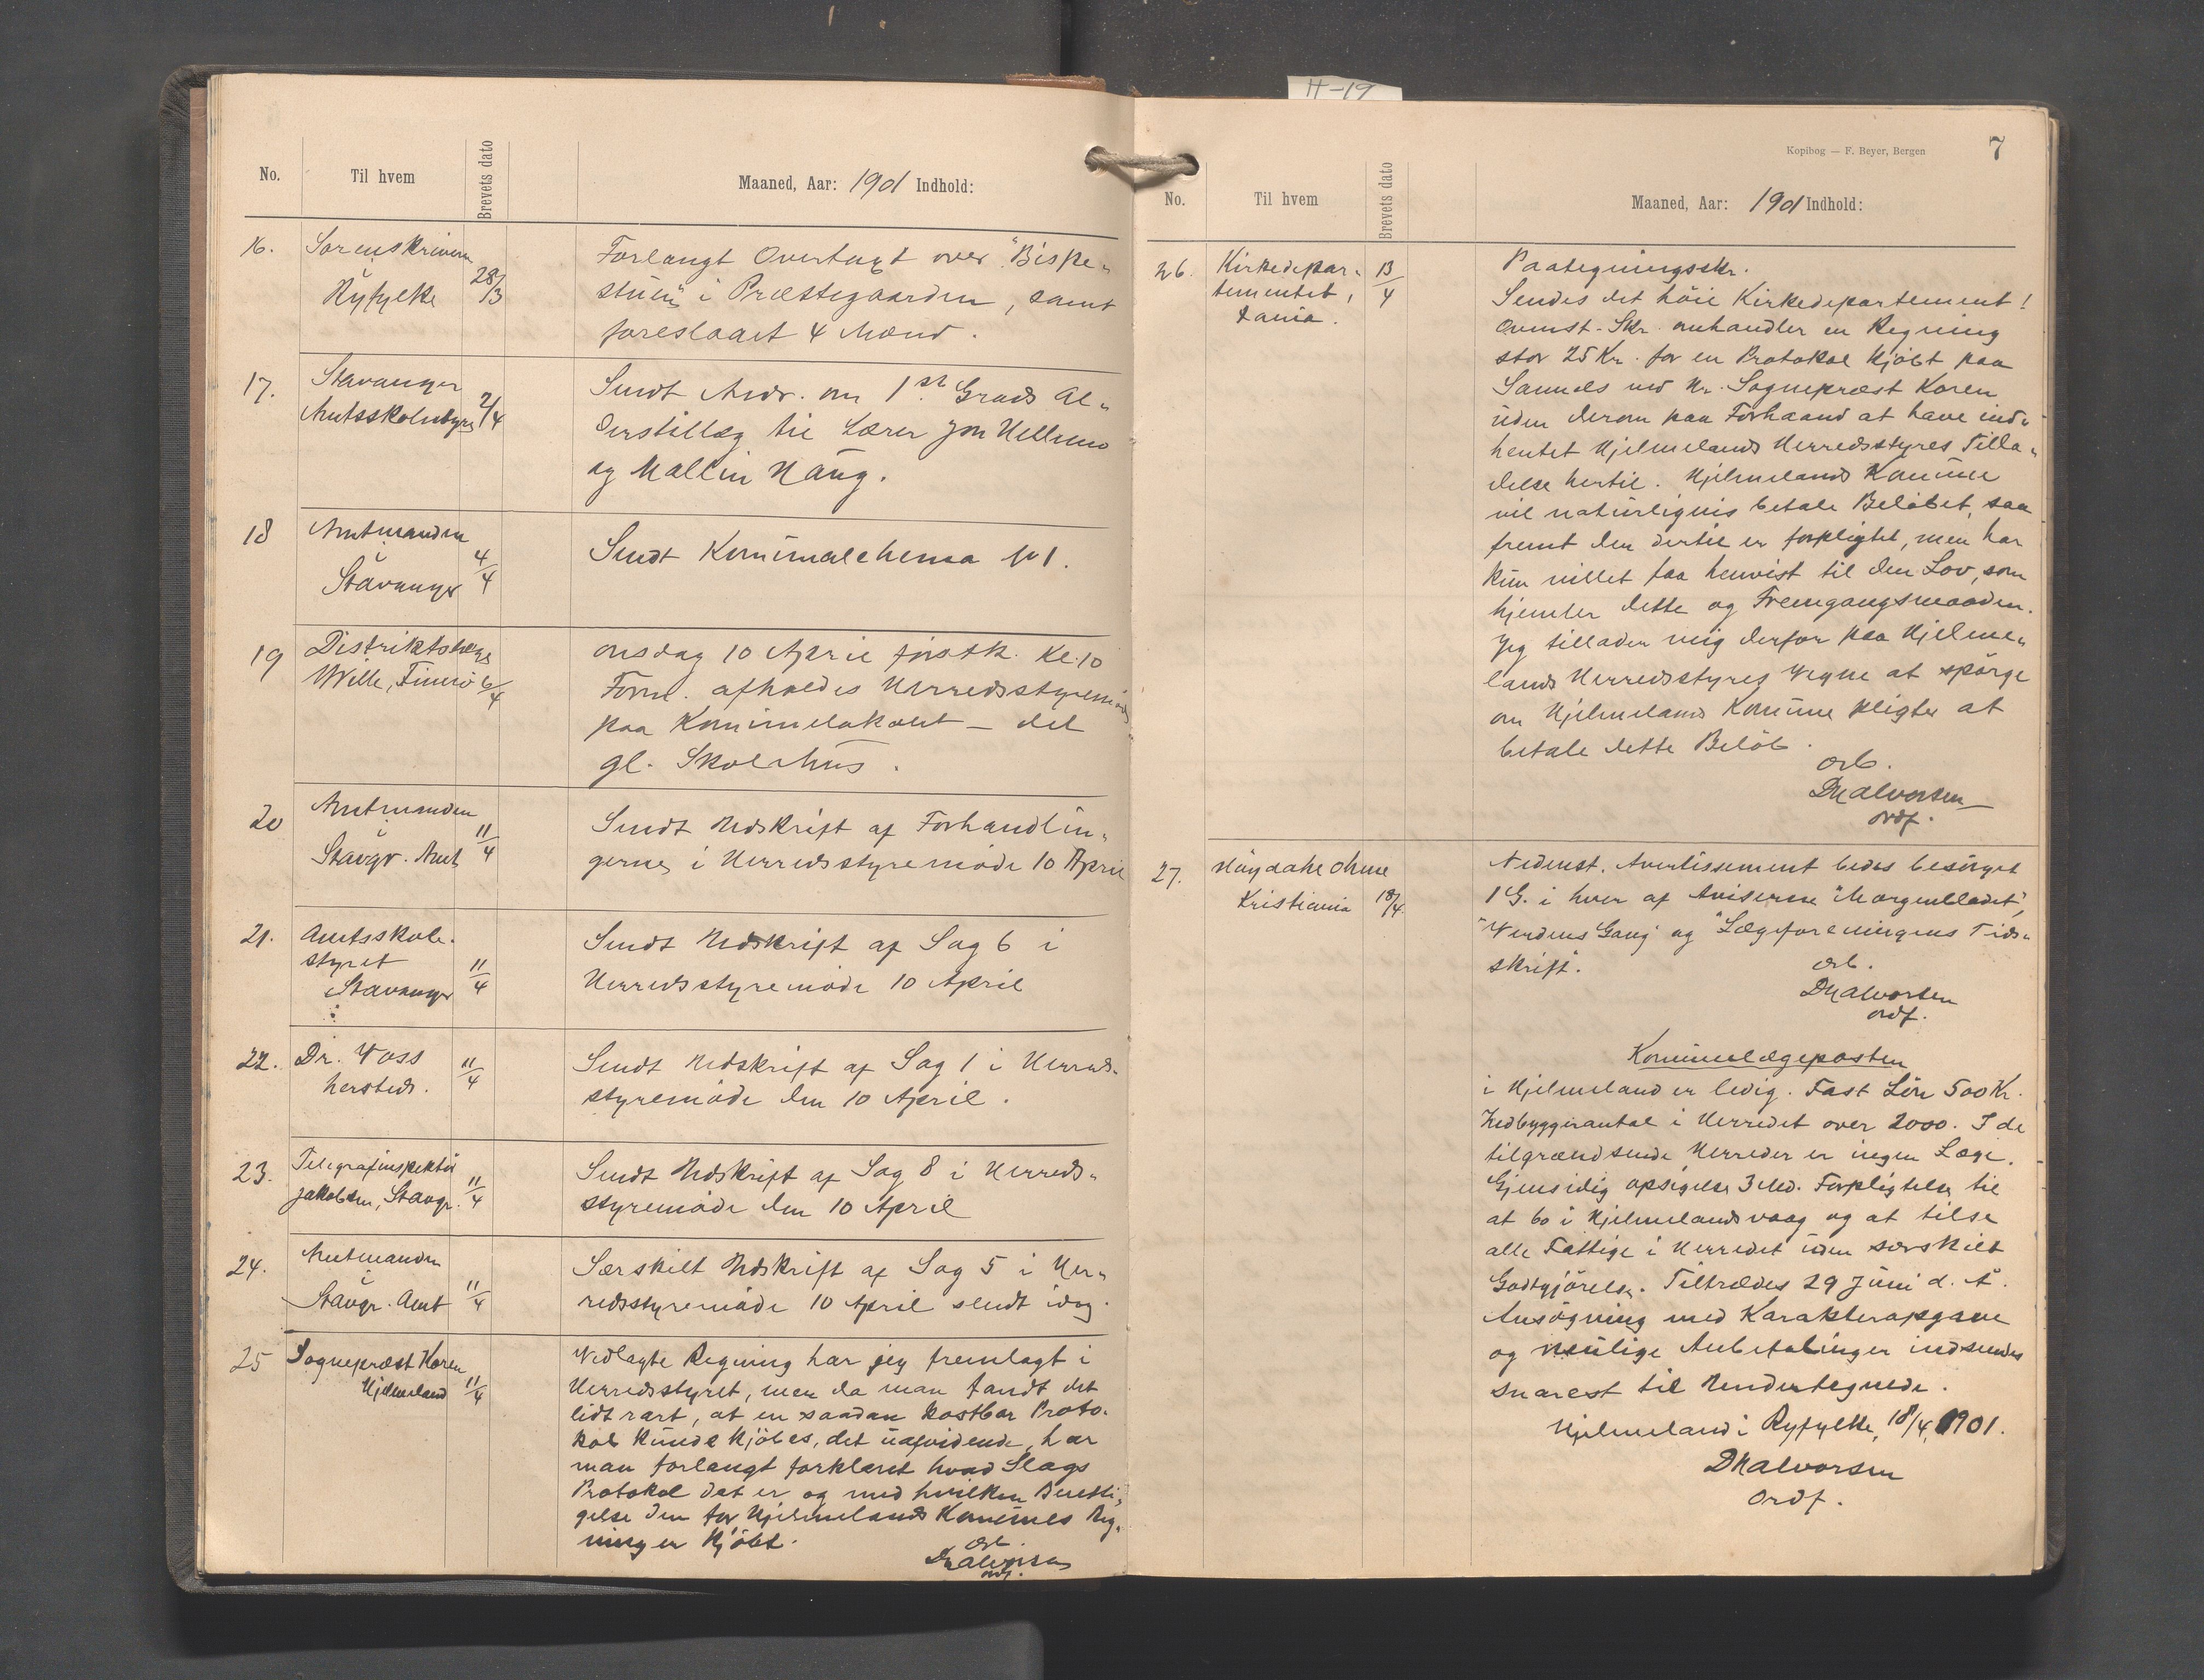 H-19
No. Til hvem Brevets dato Maaned, Aar: 1901 Indhold:
16. Sorenskriveren Forlangt Overtagt over "Bispe-
Ryfylke 28/3 stuen" i Præstegaarden, samt
foreslaaet 4 Mænd.
17. Stavanger Sendt Andr. om 1ste Grads Al-
Amtsskolestyre 2/4 derstillæg til Lærer Jon
og Mallin Haug.
18 Amtmanden Sendt Komunalchema No 1.
i Stavanger 4/4
19 Distriktslæge onsdag 10 April førstk. Kl. 10
Wille, Finnø 6/4 Form. afholdes Herredsstyremøde
paa Komunelokalet — det
gl. Skolehus.
20 Amtmanden Sendt Udskrift af Forhandlin-
i Stavgr. Amt 11/4 gerne i Herredsstyremøde 10 April
21. Amtsskole- Sendt Udskrift af Sag 6 i
styret 11/4 Herredsstyremøde 10 April
i Stavanger
22. Dr. Voss Sendt Udskrift af Sag 1 i Herreds-
hersteds. 11/4 styremøde den 10 April.
23. Telegrafinspektør Sendt Udskrift af Sag 8 i Herreds-
Jakobsen, Stavgr. 11/4 styremøde den 10 April
24. Amtmanden Særskilt Udskrift af Sag 5 i Her-
i Stavgr. Amt 11/4 redsstyremøde 10 April sendt idag.
25 Sognepræst Koren Vedlagte Regning har jeg fremlagt i
Hjelmeland 11/4 Herredsstyret, men da man fandt det
lidt rart, at en saadan kostbar Proto-
kol kunde kjøbes, det uafvidende, har
man forlangt forklaret hvad Slags
Protokol det er og med hvilken Beretti-
gelse den for Hjelmelands Komunes Reg-
ning er kjøbt.
Ærb.
DHalvorsen
ordf.
7
Kopibog — F. Beyer, Bergen
No. Til hvem Brevets dato Maaned, Aar: 1901 Indhold:
26. Kirkedepar- 13/4 Paategningsskr.
tementet, Sendes det høie Kirkedepartement!
Kania. Ovenst. Skr. omhandler en Regning
stor 25 Kr. for en Protokol kjøbt paa
Sammes ved Hr. Sognepræst Koren
uden derom paa Forhaand at have ind-
hentet Hjelmelands Herredsstyres Tilla-
delse hertil. Hjelmelands Komune
vil naturligvis betale Beløbet, saa
fremt den dertil er forpligtet, men har
kun villet faa henvist til den Lov, som
hjemler dette og Fremgangsmaaden.
Jeg tillader mig derfor paa Hjelme-
lands Herredsstyres Vegne at spørge
om Hjelmelands Komune pligter at
betale dette Beløb.
Ærb.
DHalvorsen
ordf.
27. Høydahl Ohme Nedenst. Avertissement bedes besørget
Kristiania 18/4 1 G. i hver af Aviserne "Morgenbladet",
"Verdens Gang" og "Lægeforeningens Tids-
skrift".
Ærb.
DHalvorsen
ordf.
Komunelægeposten
i Hjelmeland er ledig. Fast Løn 500 Kr.
Indbyggerantal i Herredet over 2000. I de
tilgrændsende Herreder er ingen Læge.
Gjensidig opsigelse 3 Md. Forpligtelse til
at bo i Hjelmelandsvaag og at tilse
alle Fattige i Herredet uden særskilt
Godtgjørelse. Tiltrædes 29 Juni d. A.
Ansøgning med Karakteropgave
og mulige Anbefalinger indsendes
snarest til Undertegnede.
Hjelmeland i Ryfylke, 18/4 1901.
DHalvorsen
Ordf.